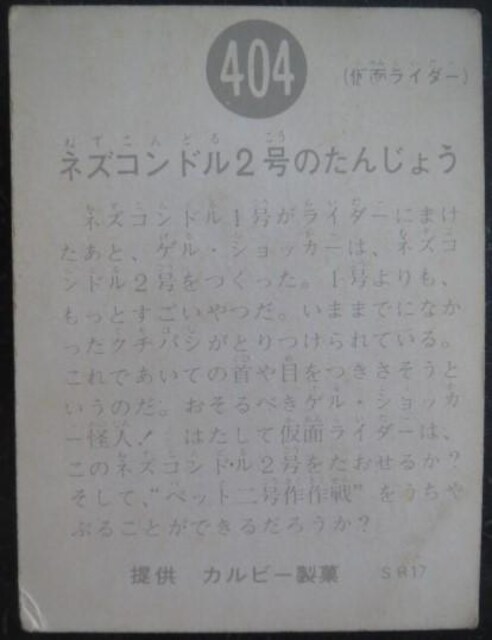 404
(仮面ライダー)
ネズコンドル2号のたんじょう
ネズコンドル1号がライダーにまけ
たあと、ゲル・ショッカーは、ネズコ
ンドル2号をつくった。1号よりも、
もっとすごいやつだ。いままでになか
ったクチバシがとりつけられている。
これであいての首や目をつきさそうと
いうのだ。おそるべきゲル・ショッカ
ー怪人! はたして仮面ライダーは、
このネズコンドル2号をたおせるか?
そして、"ペット二号作作戦"をうちや
ぶることができるだろうか?
提供 カルビー製菓 SR17